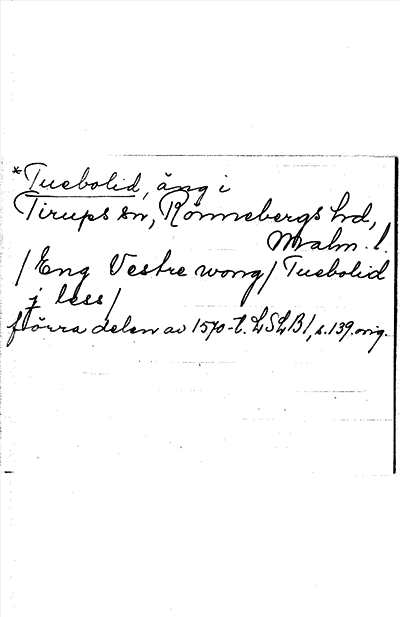 *Tuebolid, äng i
Tirups sn, Rönnebergs hd,
Malm. l.
/Eng Vestre wong/ Tuebolid
j less/
förra delen av 1570-t. LSLB1, s.139.orig.